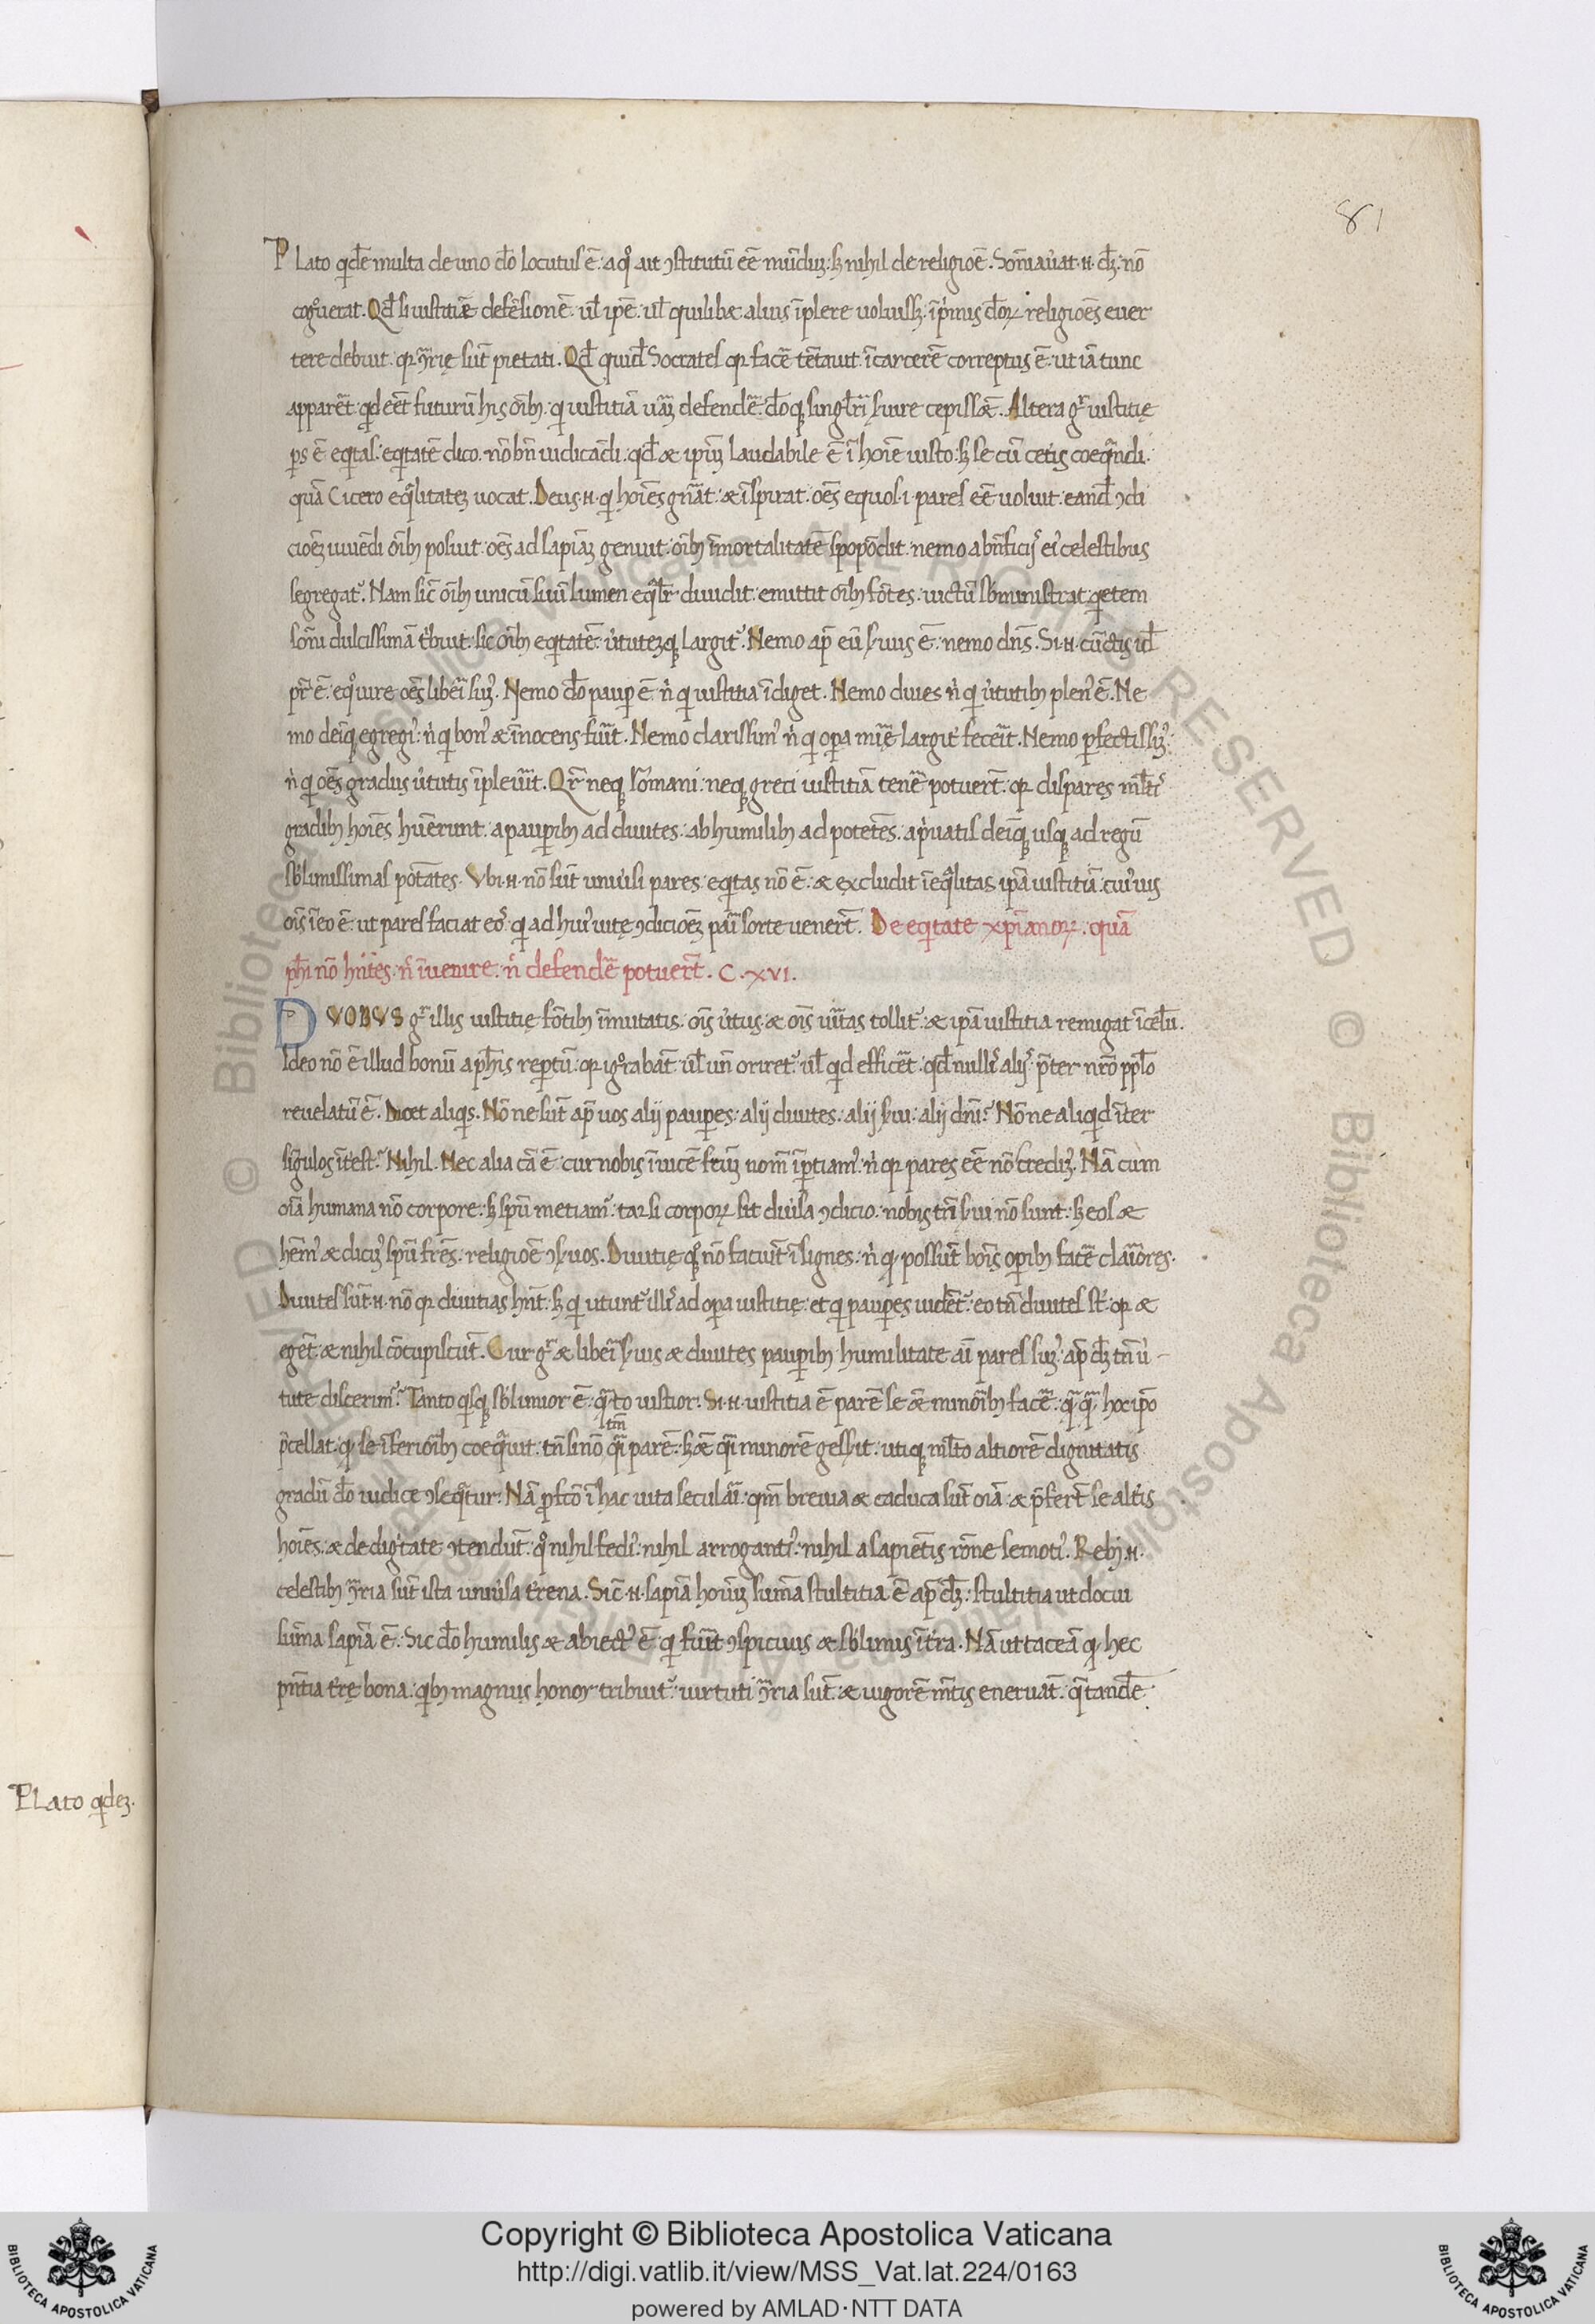 81
Plato qͥdē multa de uno dō locutus ē. a qͦ ait ꝯstitutū eē mūdū. sꝫ nihil de religiōe. Sōniau̓at .n. dꝫ. nō
cogͦuerat. Qd̄ si iustitiæ defēsionē. ul̄ ipē. ul̄ quilibꝫ alius īplere uoluissꝫ. īpͥmis dōꝝ religiōes euer
tere debuit. qꝛ ꝯͣrię sūt pietati. Qd̄ quid̄ Socrates qꝛ facē tētauit ī carcerē correptus ē. ut iā tunc
apparēt qͥd eēt futurū his oīb; qͥ iustitiā uāꝫ defendē. dōq; singl̄ri ẜuire cepissæ. Altera gͦ iustitię
ps ē eqͥtas. eqͥtatē dico. nō bn̄ iudicādi. qd̄ æ ipm̄ laudabile ē ī hoīe iusto. sꝫ se cū cet̓is coeqͣndi.
quā Cicero eqͣlitateꝫ uocat. Deus .n. qͥ hoīes gn̄at. æ īspirat. oēs equos .i. pares eē uoluit. eand̄ ꝯdi
cioēꝫ uiuēdi oīb; posuit. oēs ad sapiāꝫ genuit. oīb; īmortalitatē spopōdit. nemo a bn̄ficijͦ eiꝰ celestibus
segregat᷑. Nam sic̄ oīb; unicū suū lumen eqͣlr̄ diuidit. emittit oīb; fōtes. uictū sb̄ministrat. qͥetem
sōni dulcissimā tͥbuit. sic oīb; eqͥtatē. u̓tuteꝫq; largit᷑. Nemo ap̄ eū ẜuus ē. nemo dn̄s. Si .n. cūctis id̄
pr̄ ē. eqͦ iure oēs liberi sumꝰ. Nemo dō paup̱ ē. nͥ qͥ iustitia īdiget. Nemo diues nͥ qͥ u̓tutib; plenꝰ ē. Ne
mo deīq; egregiꝰ. nͥ qͥ bonꝰ æ īnocens fuīt. Nemo clarissimꝰ nͥ qͥ oꝑa mīę largit̓ fecīt. Nemo ꝑfectissiꝰ.
nͥ qͥ oēs gradus u̓tutis īpleuīt. Qr̄ neq; Romani. neq; greci iustitiā tenē potuerūt. qꝛ dispares ml̄tiͦ
gradib; hoīes hūerunt. a pauꝑib; ad diuites. ab humilib; ad potētes. a pͥuatis deīq; usq; ad regū
sb̄limissimas potātes. Vbi .n. nō sūt uniu̓si pares. eqͥtas nō ē. æ excludit īeqͣlitas ipā iustitiā. cuiꝰ uis
oīs ī eo ē. ut pares faciat eoͦ. qͥ ad huiꝰ uitę ꝯdicioēꝫ pari sorte uenerūt. De eqͥtate xp̄ianoꝝ. quā
ph̄i nō hn̄tes. nͨ īuenire. nͨ defendē potuer̄t. C. XVI.
DVOBVS gͦ illis iustitię fōtib; īmutatis. oīs u̓tus æ oīs u̓itas tollit᷑. æ ipā iustitia remigat ī celū.
Ideo nō ē illud bonū a ph̄is reꝑtū. qꝛ igͦrabāt. ul̄ un̄ oriret᷑. ul̄ qͥd efficēt. qd̄ nulliͦ alijͦ p̄ter nr̄o ppl̄o
reuelatū ē. Dicet aliqͥs. Nōne sūt ap̄ uos alij pauꝑes. alij diuites. alij ẜui. alij dn̄i? Nōne aliqͥd īter
sīgulos īt̓est? Nihil. Nec alia cā ē. cur nobis īuicē frūm nom̄ īꝑtiamꝰ. nͥ qꝛ pares eē nō credimꝰ. Nā cum
oīa humana nō corpore. sꝫ spū metiamꝰ. tāꝫsi corpoꝝ sit diu̓sa ꝯdicio. nobis tn̄ ẜui nō sunt. sꝫ eos æ
hēmꝰ æ dicimꝰ spū frēs. religiōe ꝯẜuos. Diuitię qͦ; nō faciūt īsignes. nͥ qͥ possūt bonis oꝑib; facē clariores.
Diuites sūt .n. nō qꝛ diuitias hn̄t. sꝫ qͥ utunt᷑ illiͦ ad oꝑa iustitię. et qͥ pauꝑes uidēt᷑. eo tn̄ diuites st̄. qꝛ æ
egēt. æ nihil cōcupiscūt. Cur gͦ æ liberi ẜuis æ diuites pauꝑib; humilitate aī pares simꝰ. ap̄ dꝫ tn̄ u̓-
tute discerimꝰ? Tanto qͥsq; sb̄limior ē. qͣto iustior. Si .n. iustitia ē parē se ǣ minorib; facē. qͣqͣ hoc ipō
p̄cellat. qͥ se īferiorib; coeqͣuit. tn̄ si nō tm̄ qͣi parē. sꝫ ǣ qͣi minorē gesẜit. utiq; ml̄to altiorē dignitatis
gradū dō iudice ꝯseqͥtur. Nā ꝓfcō ī hac uita seculari. qm̄ breuia æ caduca sūt oīa. æ p̄ferūt se alt̓is
hoīes. æ de digͥtate ꝯtendūt. qͦ nihil fediꝰ. nihil arrogantiꝰ. nihil a sapiētis rōne semotiꝰ. Reb; .n.
celestib; ꝯͣria sūt ista uniu̓sa t̓rena. Sic̄ .n. sapiā hoīuꝫ sūma stultitia ē ap̄ dꝫ. stultitia ut docui
sūma sapiā ē. Sic dō humilis æ abiectꝰ ē. qͥ fuīt ꝯspicuus æ sb̄limis ī t̓ra. Nā ut taceā qͥ hec
pn̄tia t̓rę bona. qͥb; magnus honor tribuit᷑. uirtuti ꝯͣria sūt. æ uigorē mētis eneruāt. qͣ tandē
Plato qͥdeꝫ.
Copyright © Biblioteca Apostolica Vaticana
http://digi.vatlib.it/view/MSS_Vat.lat.224/0163
powered by AMLAD·NTT DATA